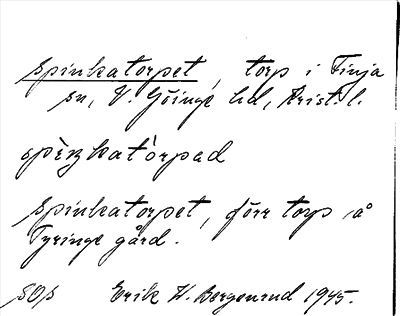 Spinkatorpet, torp i Finja
sn, V. Göinge hd, Krist. l.
spìŋkatórpad
Spinkatorpet, förr torp å
Tyringe gård.
SOs Erik W. Bergenrud 1945.